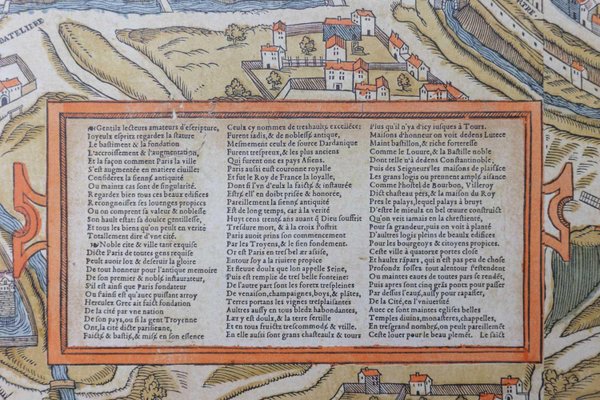 DATELIERE
Gentilz lecteurs amateurs d'escripture,
Ioyeulx espritz regardez la stature
Le bastiment & la fondation
L'accroissement & l'augmentation,
Et la façon comment Paris la ville
S'est augmentée en matiere ciuille
Considerez la siēne antiquité
Ou maintz cas sont de singularité.
Regardez bien tous ces beaux edifices
Recongnoissez ses louenges propices
On comprend sa valeur & noblesse
En hault estat: sa doulce gentillesse,
Et tous les biens qu'on peult en verité
Totallement dire d'vne cité.
Noble cite & ville tant exquise
Dicte Paris de toutes gens requise
Peult auoir los & deseruir la gloire
De tout honneur pour l'antique memoire
De son premier & noble instaurateur,
S'il est ainsi que Paris fondateur
Ou sainsi est qu'auec puissant arroy
Hercules Grec ait faict fondation
De la cité par vne nation
De son pays, ou si la gent Troyenne
Ont, la cité dicte parisienne,
Faictz & bastiz, & mise en son essence
Ceulx cy nommez de treshaultz excellēce:
Furent iadis, & de noblesse antique,
Mesmement ceulx de source Dardanique
Furent trespreux, & les plus anciens
Qui furent onc es pays Asiens.
Paris aussi eut couronne royalle
Et fut le Roy de France la loyalle,
Dont si l'vn d'eulx la faictz & instaurée
Estre el' en doibt prisée & honorée,
Pareillement la sienne antiquité
Est de long temps, car à la verité
Huyt cens trente ans auant que Dieu souffrit
Tresdure mort, & à la croix s'offrit
Paris auoit prins son commencement
Par les Troyens, & le sien fondement.
Or est Paris en tresbel aer assise,
Entour soy a la riuiere propice
Et fleuue doulx que lon appelle Seine,
Puis est remplie de tresbelle fonteine:
De l'autre part sont les foretz tresplenes
De venaison, champaignes, boys, & plätes,
Terres portans les vignes tresplaisantes
Aultres aussy en tous bledz habondantes,
L'aer y est doulx, & la terre fertille
Et en tous fruictz trescommode & vtille.
En elle aussi sont grans chasteaulx & tours
Plus qu'il n'ya d'icy iusques à Tours.
Maisons d'honneur on voit dedens Lutece
Maint bastillon, & riche forteresse
Comme le Louure, & la Bastille noble
Dont telle n'a dedens Constantinoble,
Puis des Seigneurs les maisons de plaisance
Les grans logis ou prennent ample aisance
Comme l'hostel de Bourbon, Villeroy
Dict chasteau petit, & la maison du Roy
Pres le palays, lequel palays à bruyt
D'estre le mieulx en bel œuure construict
Qu'on veit iamais en la chrestienté,
Pour sa grandeur, puis on voit à planté
D'aultres logis plein de beaulx edifices
Pour les bourgeoys & citoyens propices.
Ceste ville à quatorze portes closé
Et haultz rēpars, qui n'est pas peu de chose
Profondz fossez tout alentour s'estendent
Ou maintes eaues de toutes pars se rendēt,
Puis apres sont cinq gräs pontz pour passer
Par dessus l'eaue, aussy pour rapasser,
De la Cité, en l'vniuersité
Auec ce sont maintes eglises belles
Temples diuins, monasteres, chappelles,
En tresgrand nombre, on peult pareillemēt
Ceste louer pour le beau plemēt. Le faict